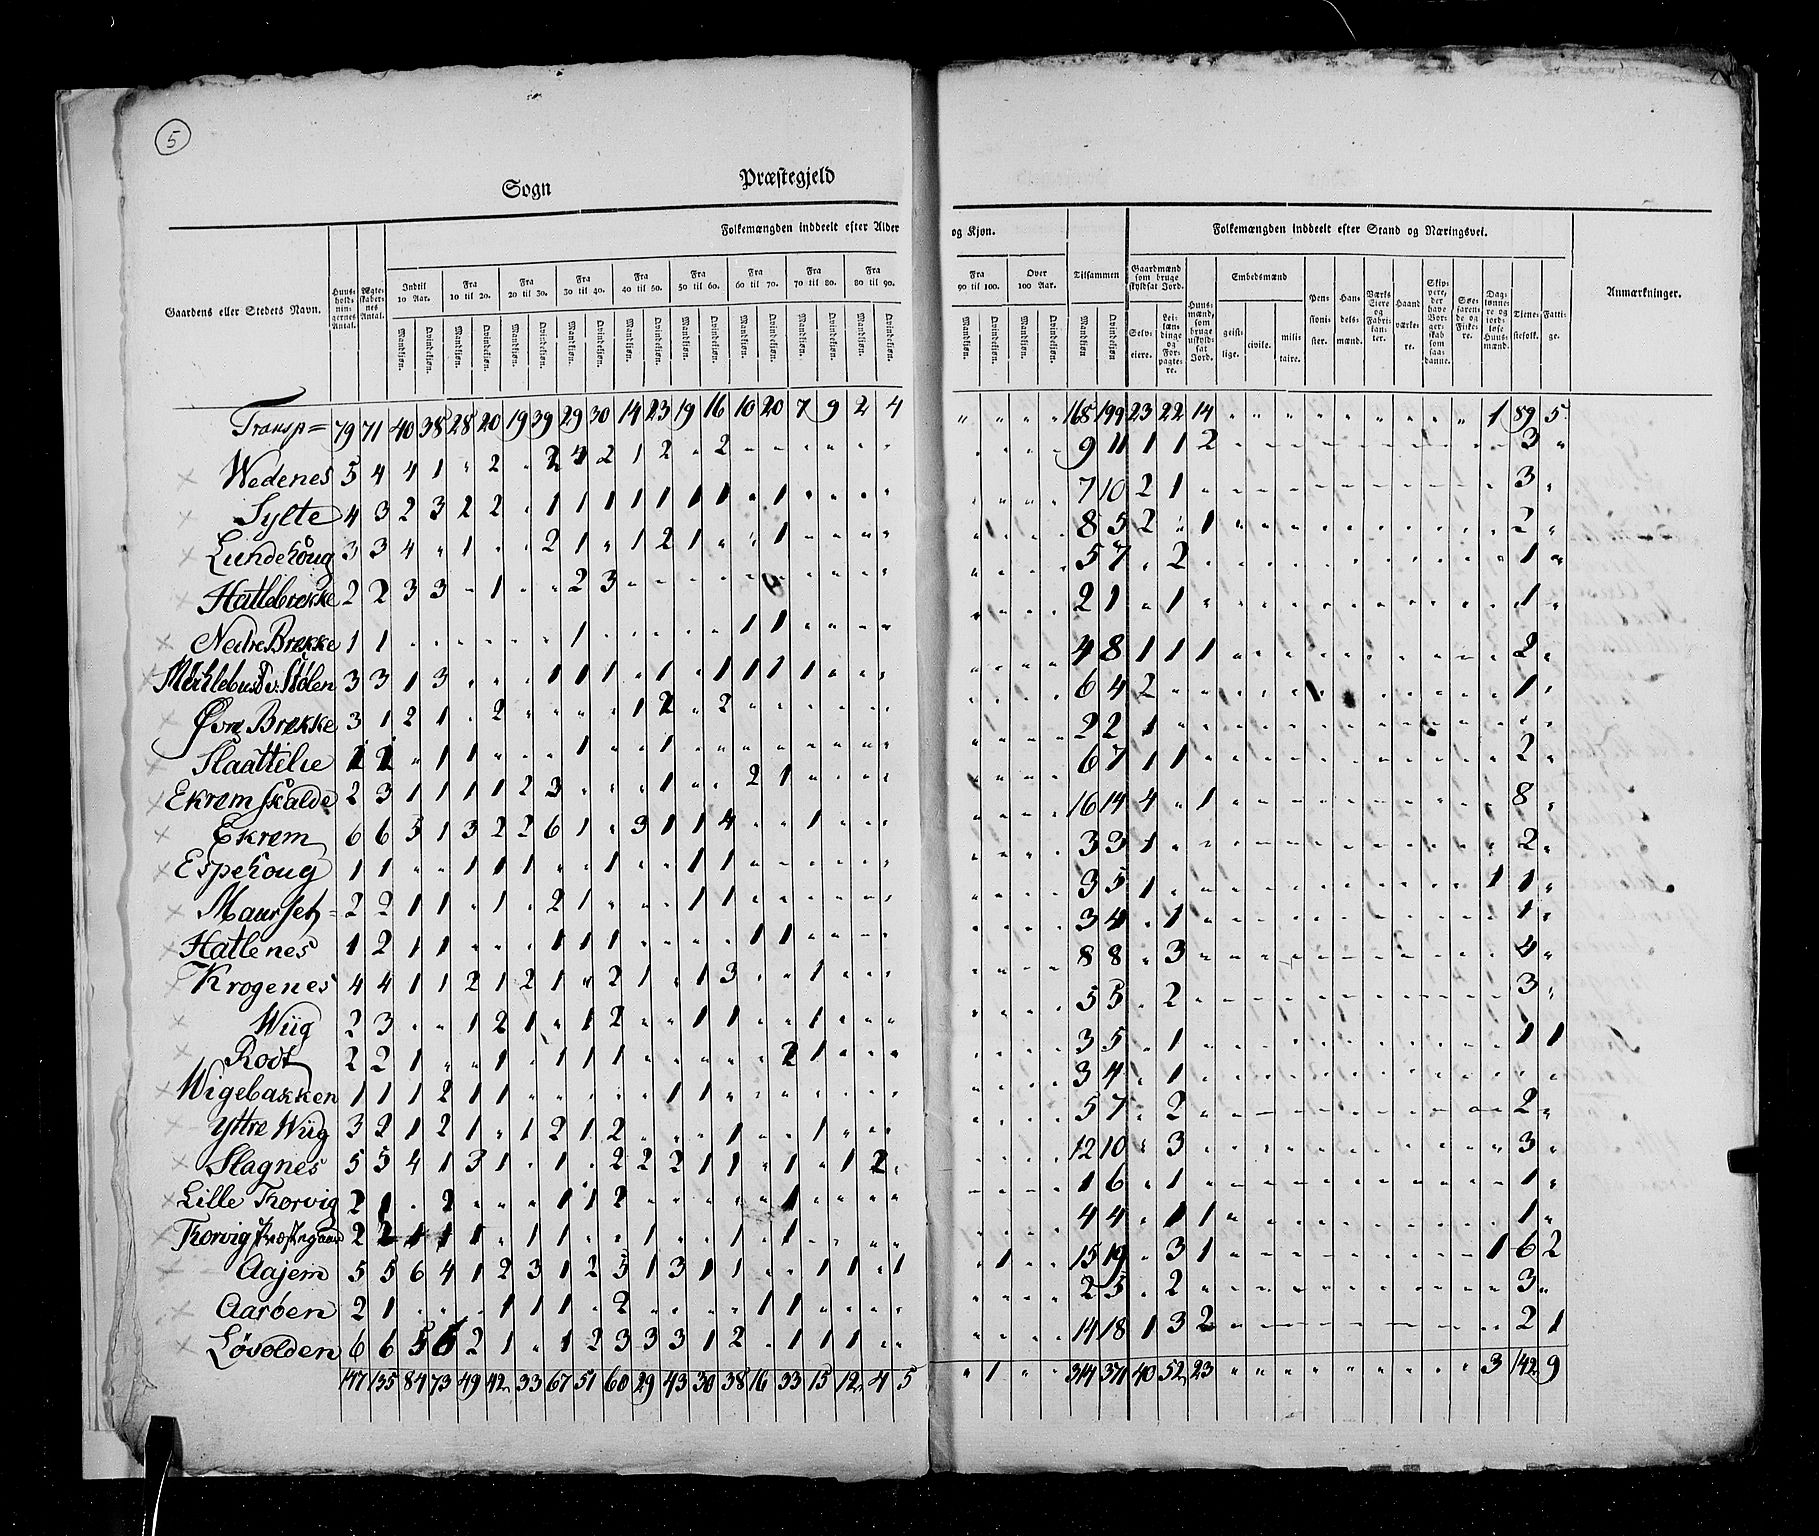 5
Sogn Præstegjeld
Folkemængden inddeelt efter Alder og Kjøn. Folkemængden inddeelt efter Stand og Næringsvei.
Gaardens eller Stedets Navn. Huusholdningernes Antal. Ægteskabernes Antal. Indtil 10 Aar. Fra 10 til 20. Fra 20 til 30. Fra 30 til 40. Fra 40 til 50. Fra 50 til 60. Fra 60 til 70. Fra 70 til 80. Fra 80 til 90. Fra 90 til 100. Over 100 Aar. Tilsammen Gaardmænd som bruge skyldsat Jord. Huusmænd, som bruge uskyldsat Jord. Embedsmænd Pensionister. Handelsmænd. Værks Eiere og Fabrikanter. Haandværkere. Skippere, der have Borgerskab som saadanne. Søefarende og Fiskere. Daglønnere og jordløse Huusmænd. Tjenestefolk. Fattige. Anmærkninger.
Mandkjøn. Qvindekjøn. Mandkjøn. Qvindekjøn. Mandkjøn. Qvindekjøn. Mandkjøn. Qvindekjøn. Mandkjøn. Qvindekjøn. Mandkjøn. Qvindekjøn. Mandkjøn. Qvindekjøn. Mandkjøn. Qvindekjøn. Mandkjøn. Qvindekjøn. Mandkjøn. Qvindekjøn. Mandkjøn. Qvindekjøn. Mandkjøn Qvindekjøn Selveiere. Leilændinge og Forpagtere. geistlige. civile. militaire.
Transp= 79 71 40 38 28 20 19 39 29 30 14 23 19 16 10 20 7 9 2 4 " " " " 168 199 23 22 14 " " " " " " " " " 1 89 5
Wedenes 5 4 4 1 " 2 " 2 4 2 1 2 " 2 " " " " " " " " " " 9 11 1 1 2 " " " " " " " " " " 3 "
Sylte 4 3 2 3 2 2 " 1 1 1 1 1 1 1 " 1 " " " " " " " " 7 10 2 1 " " " " " " " " " " " 3 "
Lundehoug 3 3 4 " 1 " " 2 1 " 1 2 1 " " 1 " " " " " " " " 8 5 2 " 1 " " " " " " " " " " 2 "
Hattlebrekke 2 2 3 3 " 1 " " 2 3 " " " " " " " " " " " " " " 5 7 " 2 " " " " " " " " " " " 1 "
Nedre Brekke 1 1 " " " " " " 1 " " " " " 1 1 " " " " " " " " 2 1 " 1 " " " " " " " " " " " 1 "
3 3 1 3 " " " 1 1 1 " 1 " 1 1 1 1 " " " " " " " 4 8 1 1 1 " " " " " " " " " " 2 "
Øvre Brekke 3 1 2 1 " 2 " " " " 1 2 " 2 " " " " " " " " " " 6 4 2 " " " " " " " " " " " " 1 "
Slaattelie 1 1 " 1 1 " " " 1 " " 1 " " " " " " " " " " " " 2 2 1 " " " " " " " " " " " " " "
Ekremskalde 2 3 1 1 1 1 2 3 " " " 1 " " 2 1 " " " " " " " " 6 7 1 1 " " " " " " " " " " " 2 "
Ekrem 6 6 5 1 3 2 2 6 1 " 3 1 1 4 " " 1 " " " " " " " 16 14 4 " 1 " " " " " " " " " " 8 "
Espehoug 1 1 " " 1 1 1 " " 1 " " 1 1 " " " " " " " " " " 3 3 1 " " " " " " " " " " " " 2 "
Maurset 2 2 1 1 " 1 " 2 1 " " " 1 1 " " " " " " " " " " 3 5 1 " " " " " " " " " " " 1 1 "
Hatlenes 1 2 1 1 " " " 1 1 1 " " " " 1 1 " " " " " " " " 3 4 " 1 " " " " " " " " " " " 1 "
Krogenes 4 4 1 1 2 1 2 1 " 2 1 " 1 3 " " 1 " " " " " " " 8 8 " 3 " " " " " " " " " " " 4 "
Wiig 2 3 " " 1 2 1 " 1 2 " " 1 1 " " 1 " " " " " " " 5 5 " 2 " " " " " " " " " " " 3 "
Rodt 2 2 1 " " 1 " 1 1 1 " " " " " 2 1 " " " " " " " 3 5 " 1 " " " " " " " " " " " 1 1
Wigebakken 1 1 1 2 1 1 " " " " " 1 1 " " " " " " " " " " " 3 4 " 1 " " " " " " " " " " " " "
Yttre Wiig 3 2 1 2 1 " 1 2 1 2 " " " 1 " " 1 " " " " " " " 5 7 " 2 " " " " " " " " " " " 2 "
Slagnes 5 5 4 1 3 1 " 1 " 2 2 2 1 1 " 1 " 1 2 " " " " " 12 10 " 3 " " " " " " " " " " " 3 "
Lille Thorvig 2 1 " 2 " " " 1 1 2 " " " " " 1 " " " " " " " " 1 6 " 1 " " " " " " " " " " " 1 "
Thorvig Præstegaard 2 2 1 1 1 " 1 1 " " 1 " " 1 " 1 " " " " " " " " 4 4 " 1 1 " " " " " " " " " " 1 "
Aajem 5 5 6 4 1 2 3 1 2 5 1 3 1 1 " " 1 1 " 1 " 1 " " 15 19 " 3 1 " " " " " " " " " 1 6 2
Aarøen 2 1 " " " 1 1 1 " 2 " " " " 1 1 " " " " " " " " 2 5 " 2 " " " " " " " " " " " 3 "
Løvolden 6 6 5 6 2 1 " 1 2 3 3 3 1 2 " 1 1 1 " " " " " " 14 18 1 3 2 " " " " " " " " " " 2 1
147 135 84 73 49 42 33 67 51 60 29 43 30 38 16 33 15 12 4 5 " 1 " " 314 371 40 52 23 " " " " " " " " " 3 142 9